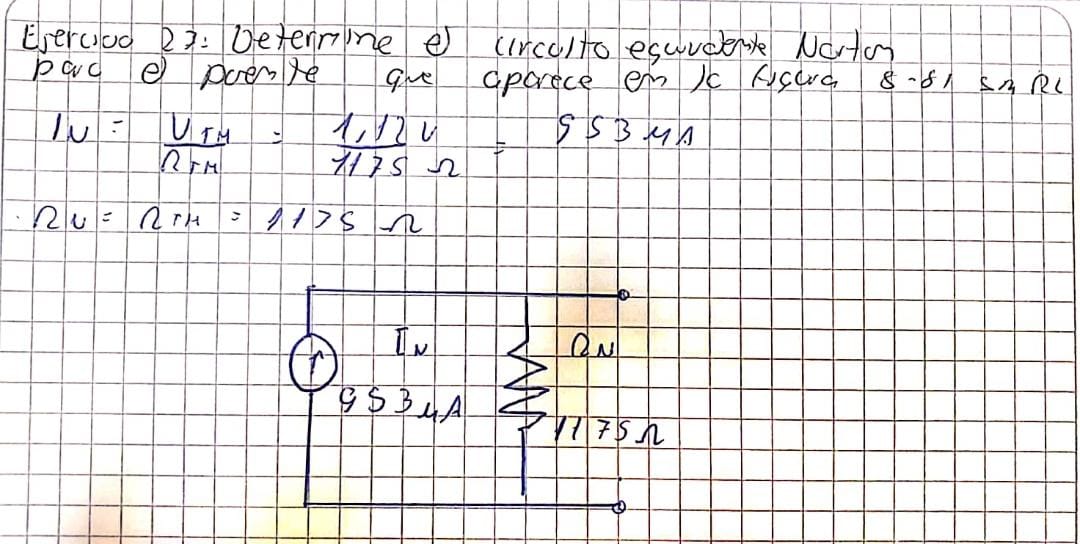 Ejercicio 27: Determine el circuito equivalente Norton
para el puente que aparece en la figura 8-81 sin RL
IN = VTH / RTH = 1,12 V / 1175 Ω = 953 µA
RN = RTH = 1175 Ω
IN RN
953 µA
1175 Ω